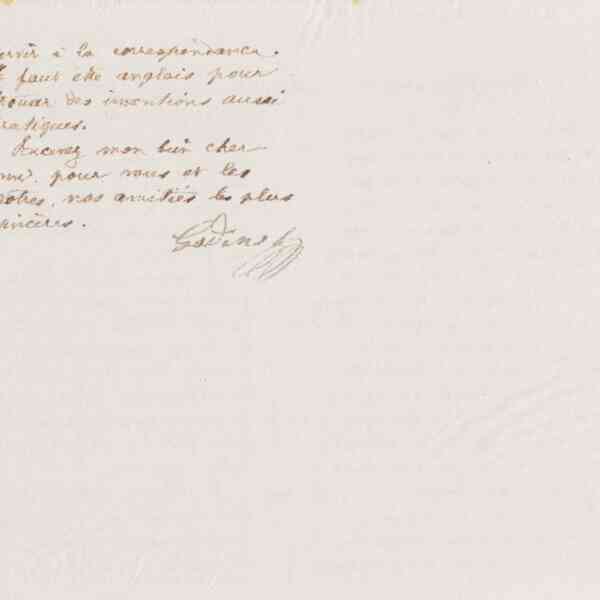 ervir à la correspondance.
faut être anglais pour
rouver des inventions aussi
ratiques.
Recevez mon bien cher
ami, pour vous et les
vôtres, nos amitiés les plus
sincères.
Godin